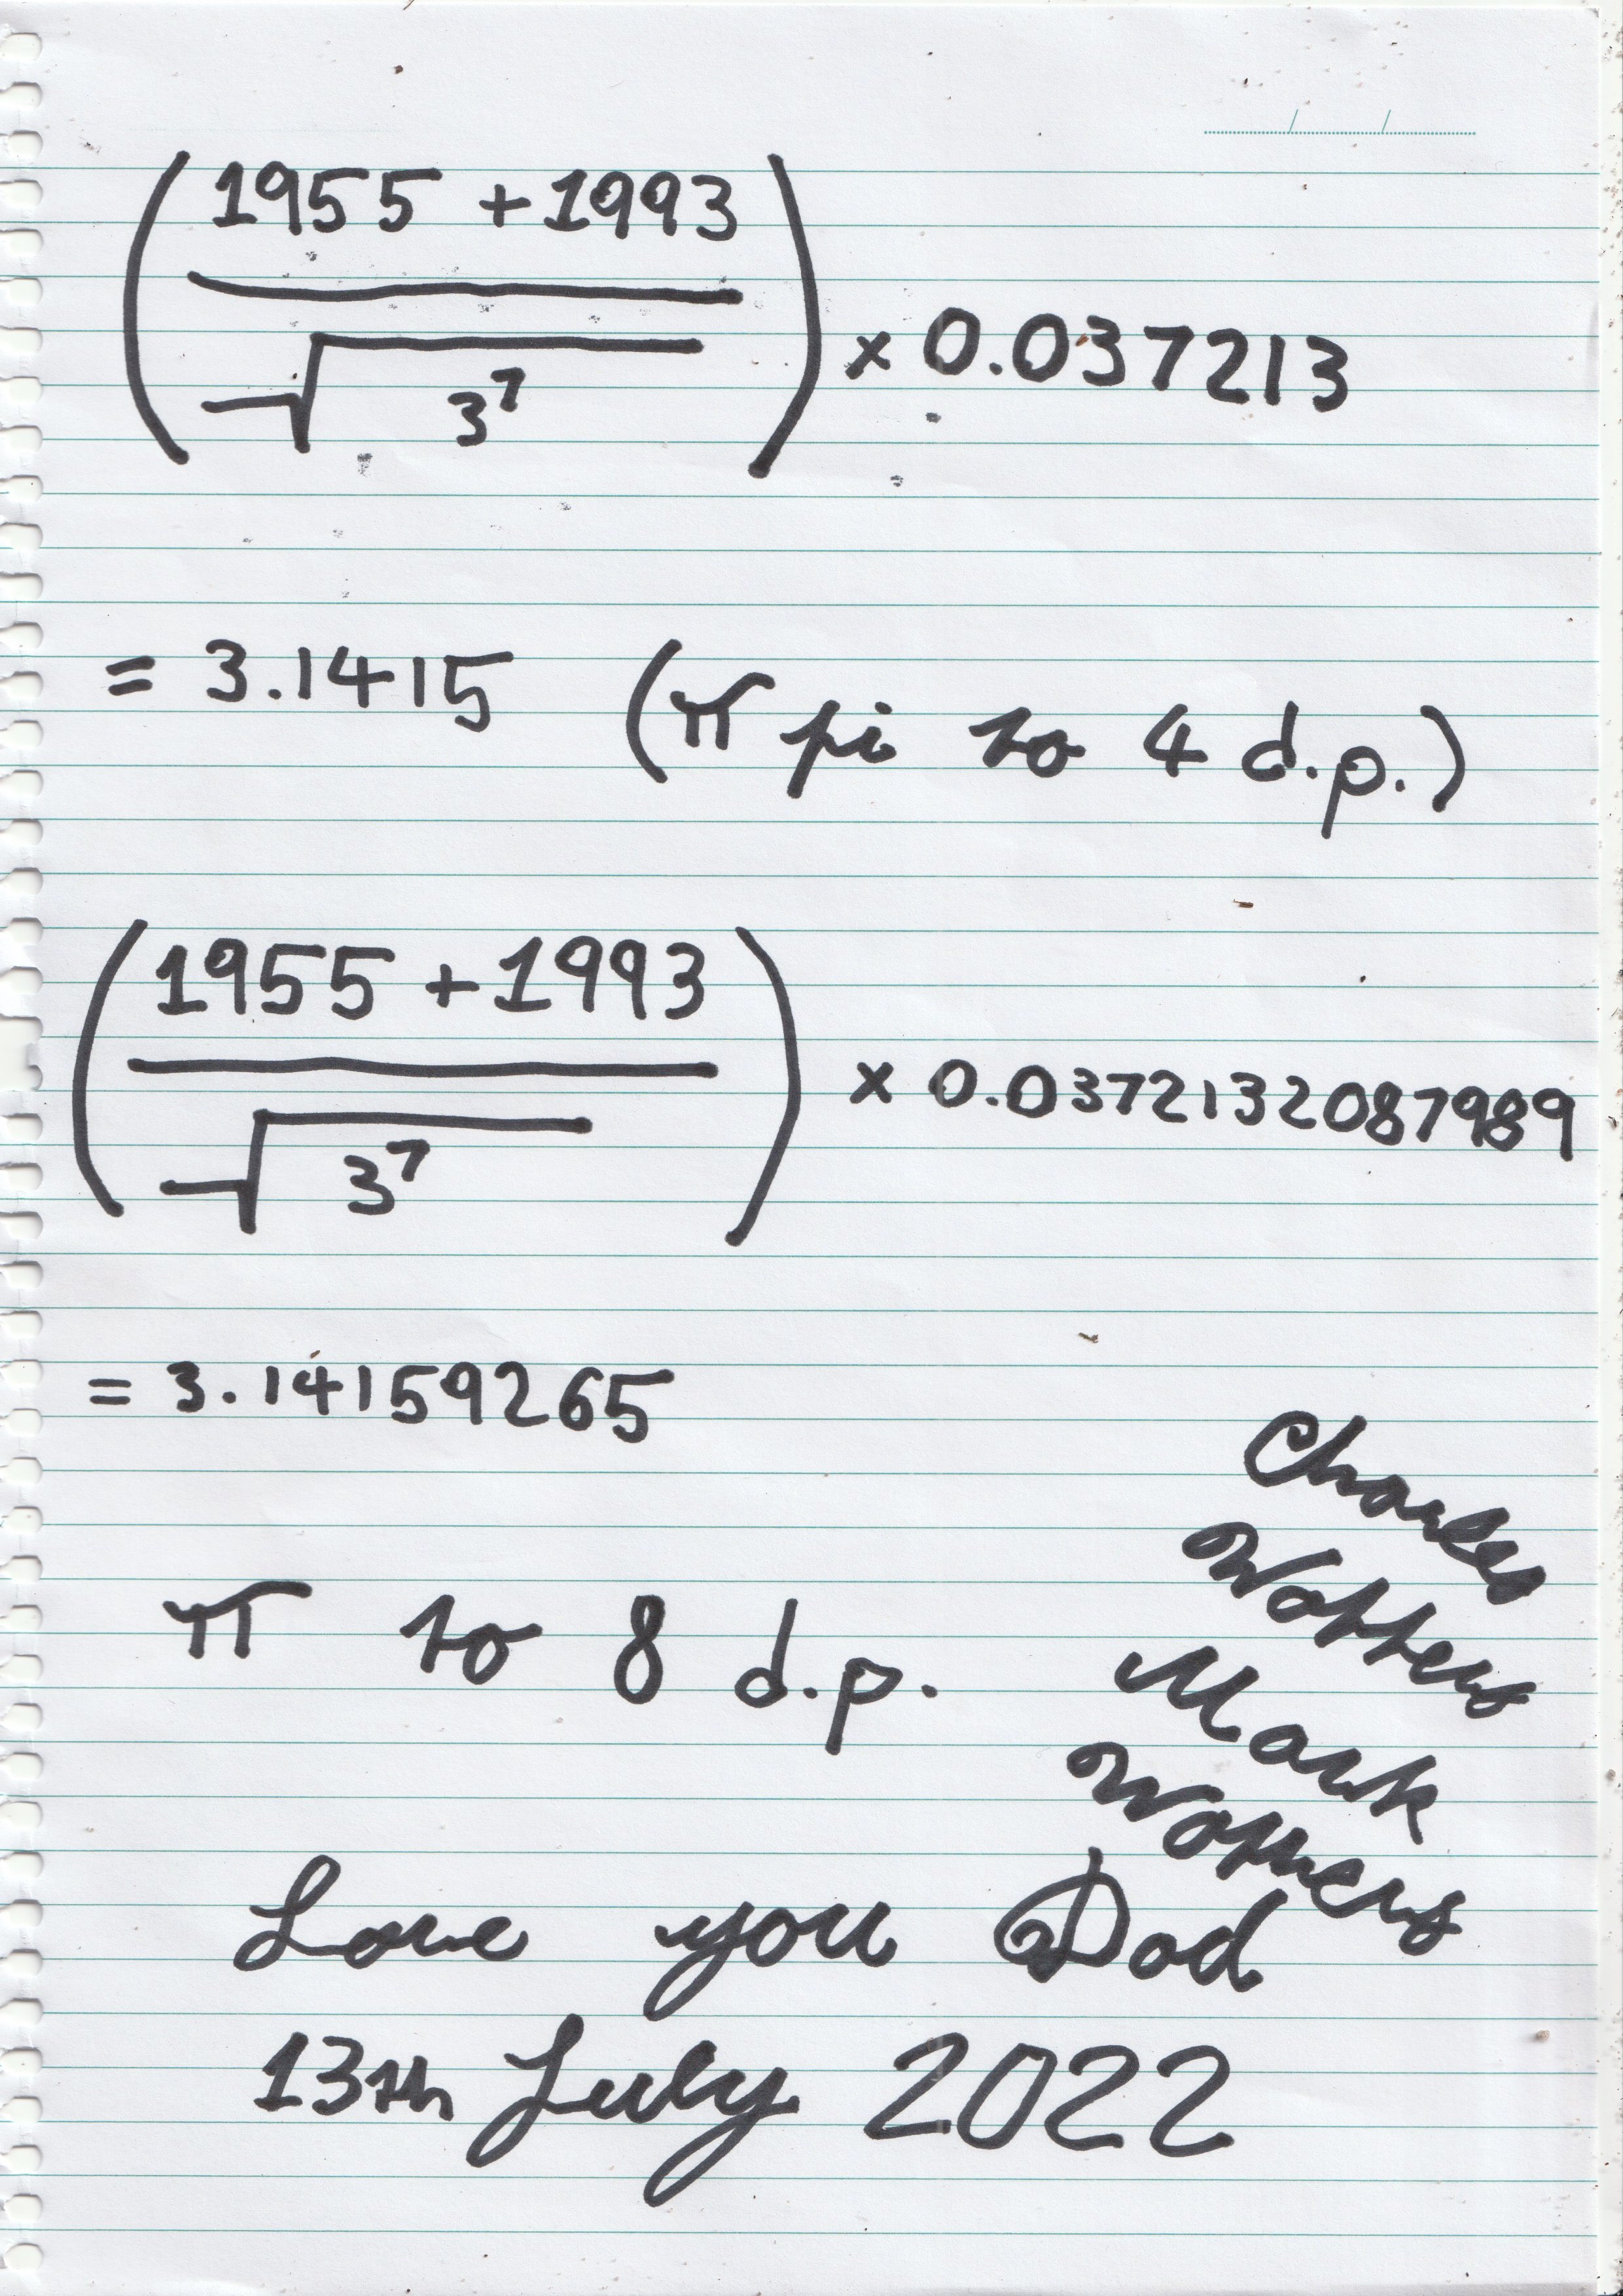 ( 1955 + 1993 / √3⁷ ) × 0.037213
= 3.1415 (π pi to 4 d.p.)
( 1955 + 1993 / √3⁷ ) × 0.0372132087989
= 3.14159265
π to 8 d.p.
Charles
Watters
Mark
Watters
Love you Dad
13th July 2022